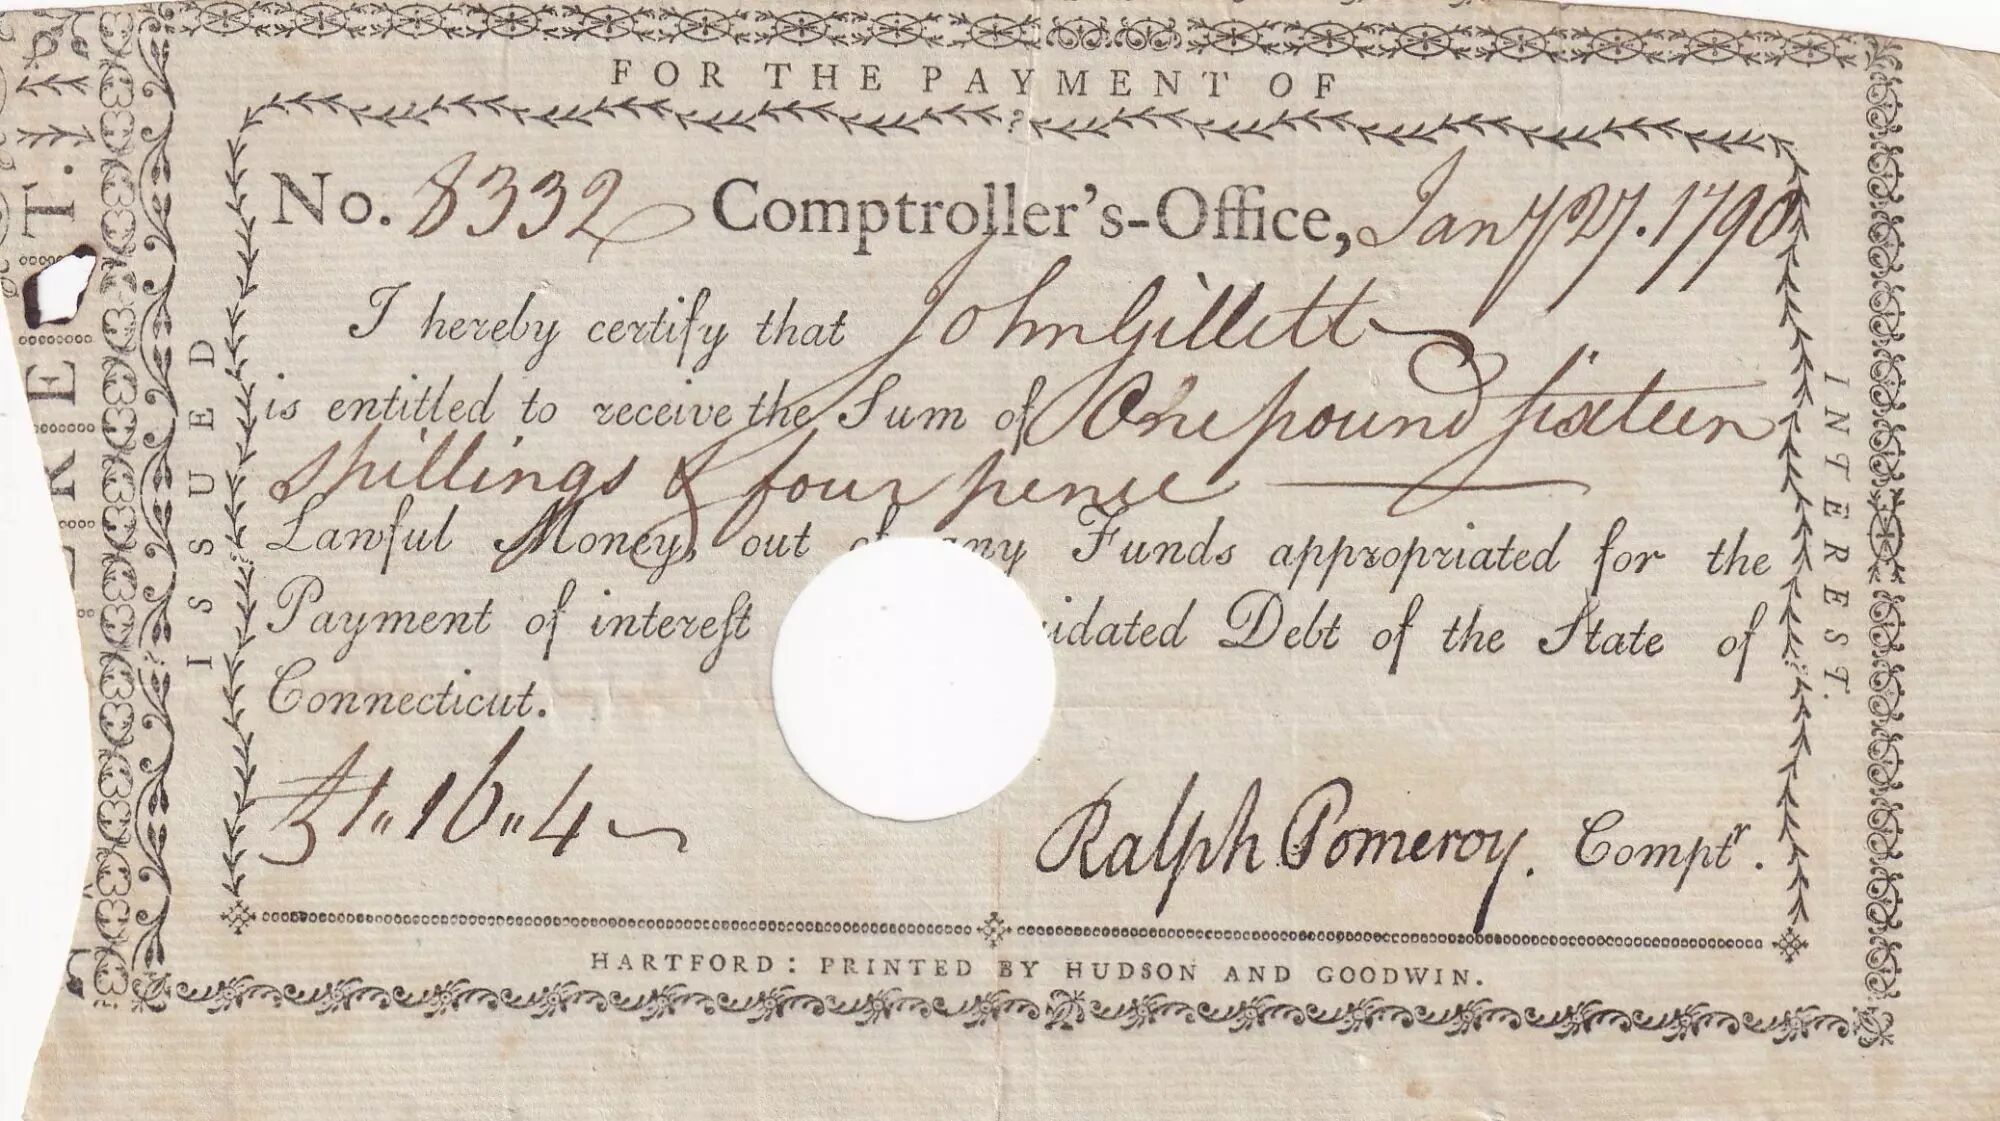 FOR THE PAYMENT OF
No. 8332 Comptroller's-Office, Jany 27. 1790
I hereby certify that John Gillett
is entitled to receive the Sum of One pound sixteen
shillings & four pence
Lawful Money, out of any Funds appropriated for the
Payment of intereſt idated Debt of the State of
Connecticut.
£1,,16,,4
Ralph Pomeroy. Comptr.
HARTFORD: PRINTED BY HUDSON AND GOODWIN.
ISSUED
INTEREST.